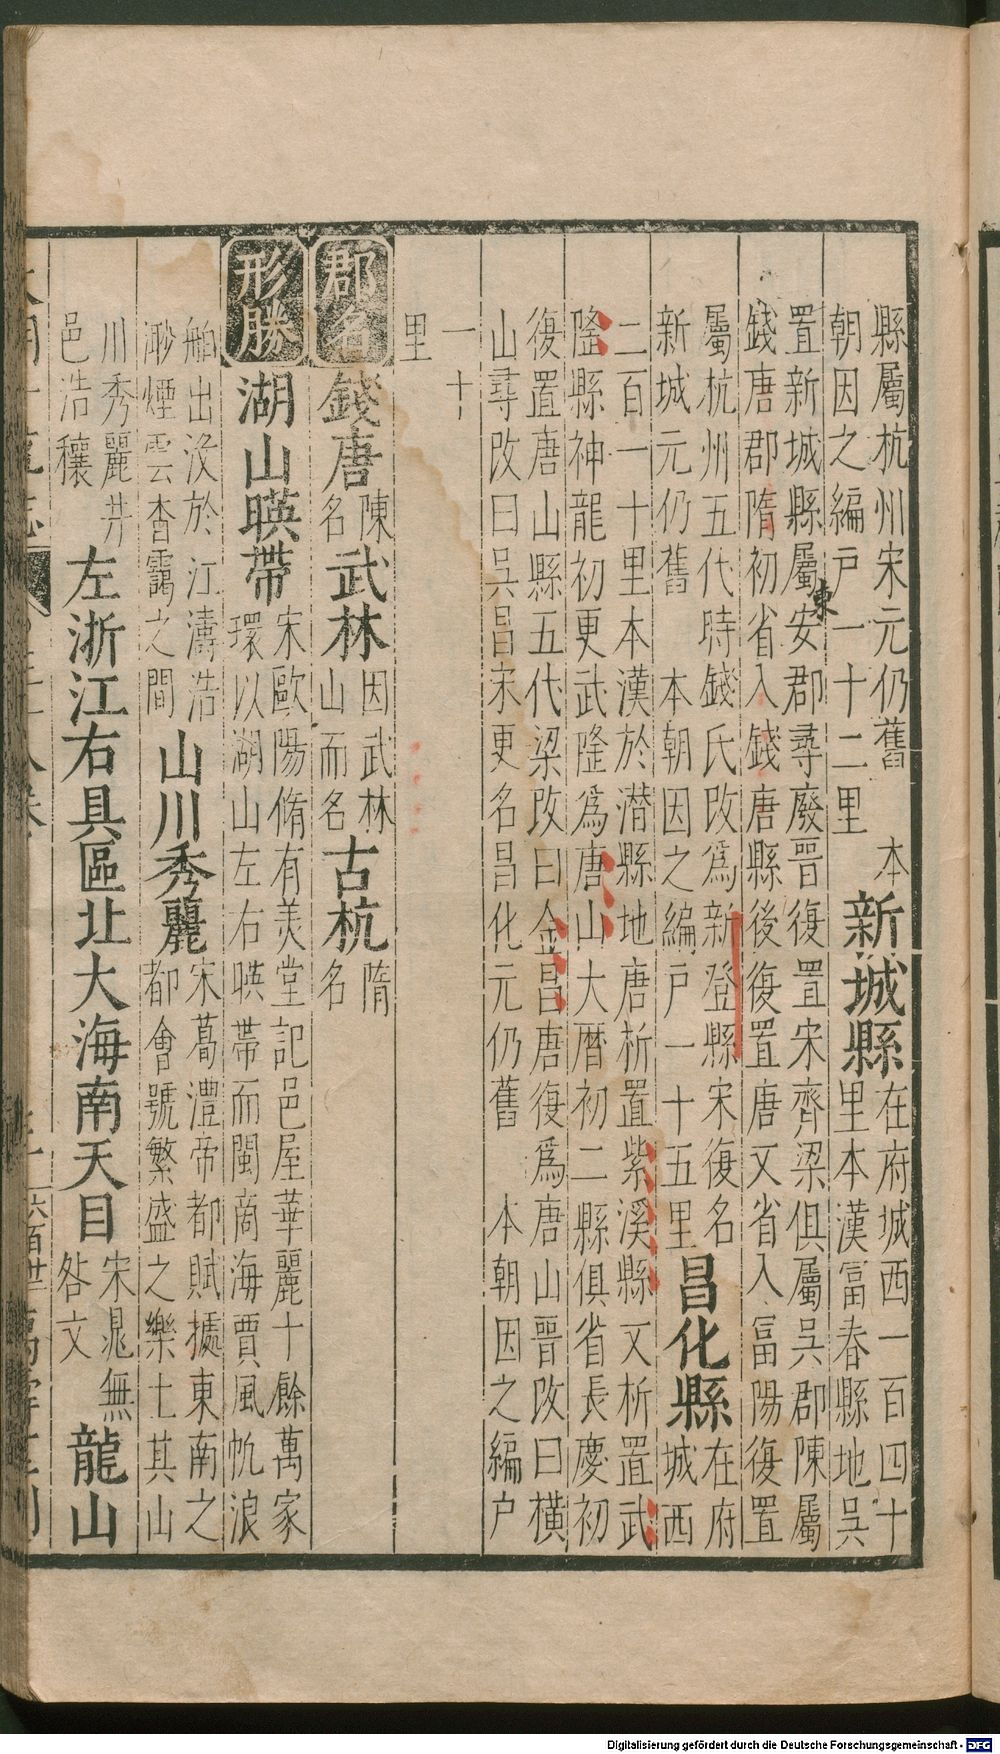 縣屬杭州宋元仍舊　本
朝因之編户一十二里
新城縣
在府城西一百四十
里本漢富春縣地吳
置新城縣屬東安郡尋廢晉復置宋齊梁俱屬吳郡陳屬
錢唐郡隋初省入錢唐縣後復置唐又省入富陽復置
屬杭州五代時錢氏改爲新登縣宋復名
新城元仍舊　本朝因之編户一十五里
昌化縣
在府
城西
二百一十里本漢於潛縣地唐析置紫溪縣又析置武
隆縣神龍初更武隆爲唐山大曆初二縣俱省長慶初
復置唐山縣五代梁改曰金昌唐復爲唐山晉改曰橫
山尋改曰吳昌宋更名昌化元仍舊　本朝因之編户
一十
里
郡名
錢唐
陳
名
武林
因武林
山而名
古杭
隋
名
形勝
湖山暎帶
宋歐陽脩有美堂記邑屋華麗十餘萬家
環以湖山左右暎帶而閩商海賈風帆浪
舶出没於江濤浩
渺煙雲杳靄之間
山川秀麗
宋葛澧帝都賦據東南之
都會號繁盛之樂土其山
川秀麗井
邑浩穰
左浙江右具區北大海南天目
宋晁無
咎文
龍山
Digitalisierung gefördert durch die Deutsche Forschungsgemeinschaft - DFG